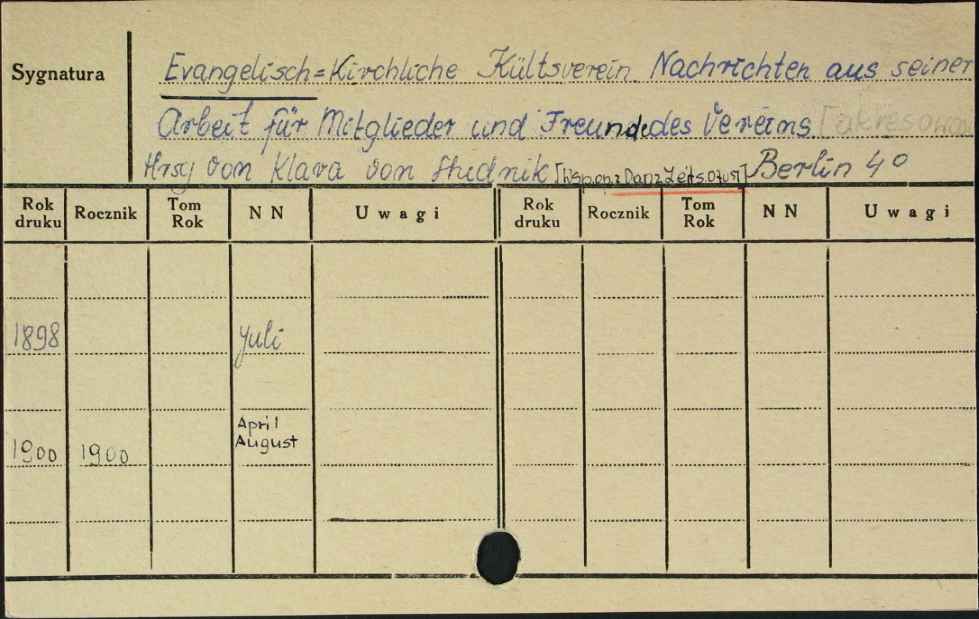 Sygnatura
Evangelisch=Kirchliche Kültsverein Nachrichten aus seiner
Arbeit für Mitglieder und Freunde des Vereins
Hrsg von Klara von Studnik Berlin 4°
Rok druku Rocznik Tom Rok N N Uwagi Rok druku Rocznik Tom Rok N N Uwagi
1898 Juli
April
1900 1900 August